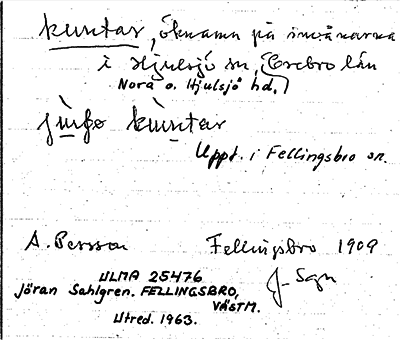 kuntar, öknamn på invånarna
i Hjulsjö sn, Örebro län
Nora o. Hjulsjö hd.)
kùntar
Uppt. i Fellingsbro sn.
A. Persson Fellingsbro 1909
J. Sgn
ULMA 25476
Jöran Sahlgren. FELLINGSBRO,
VÄSTM.
Utred. 1963.